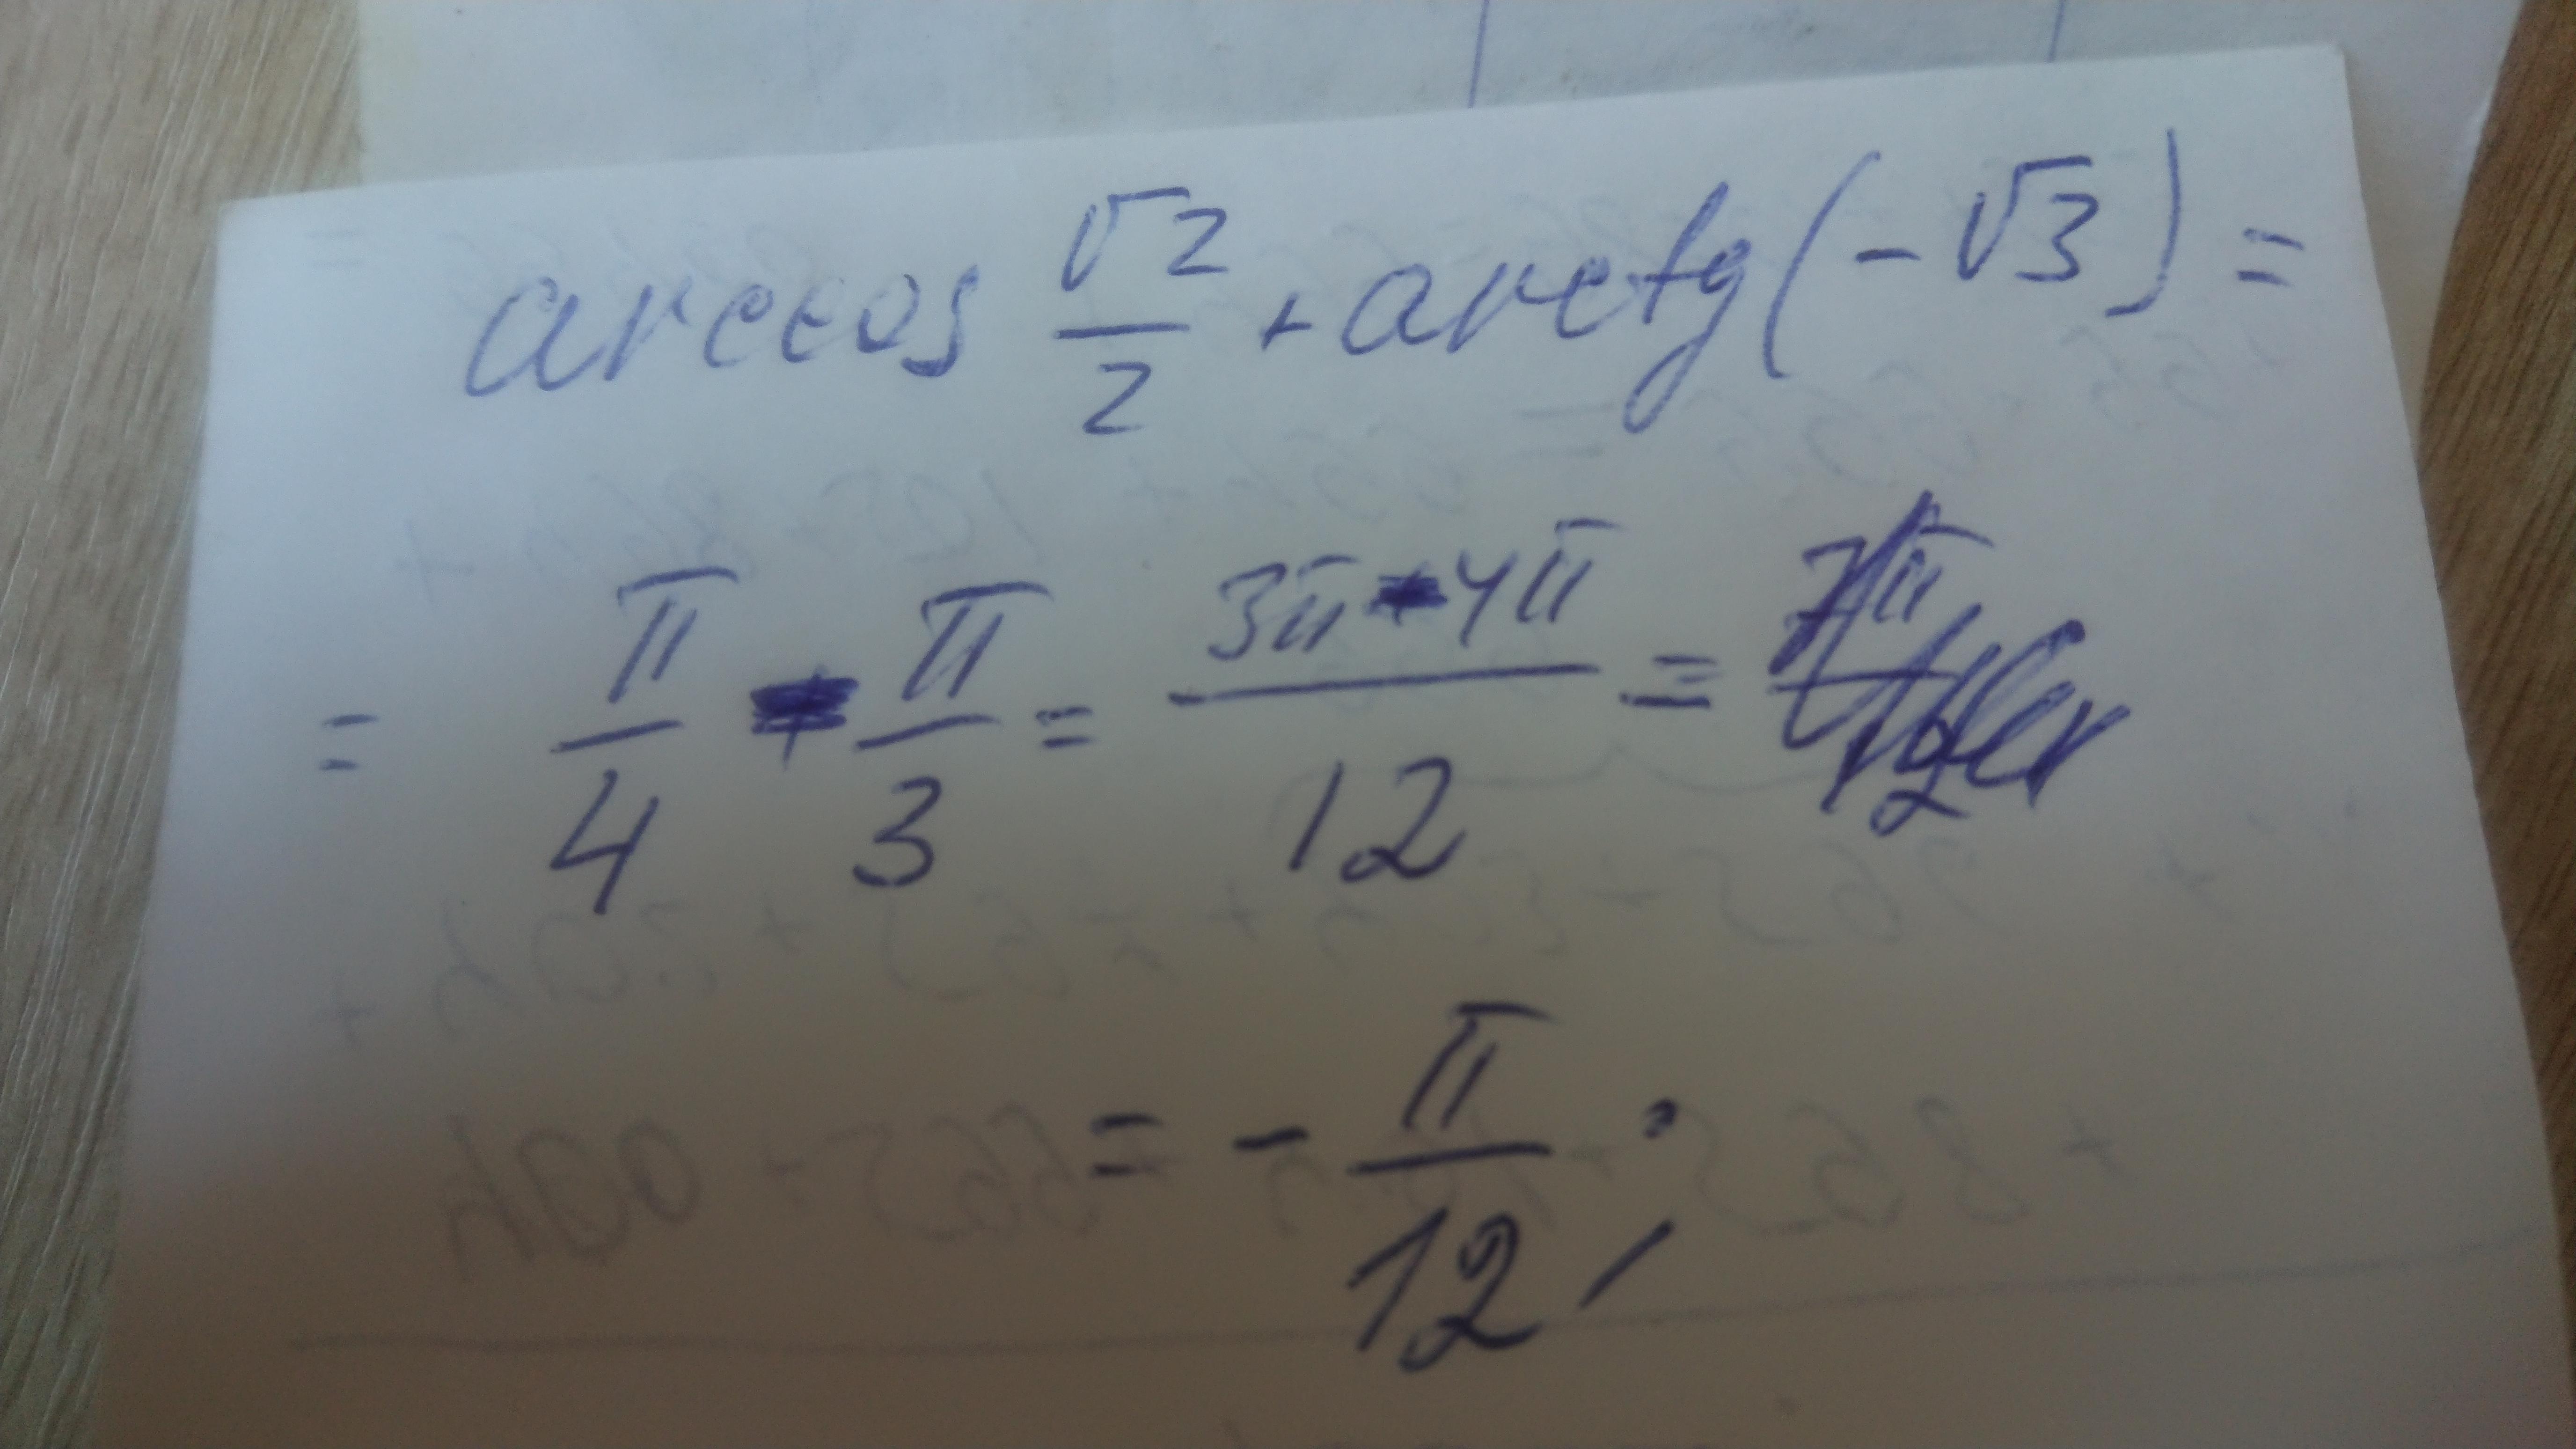 arccos √2/2 + arctg(-√3) =
= π/4 - π/3 = (3π - 4π)/12 =
= - π/12;